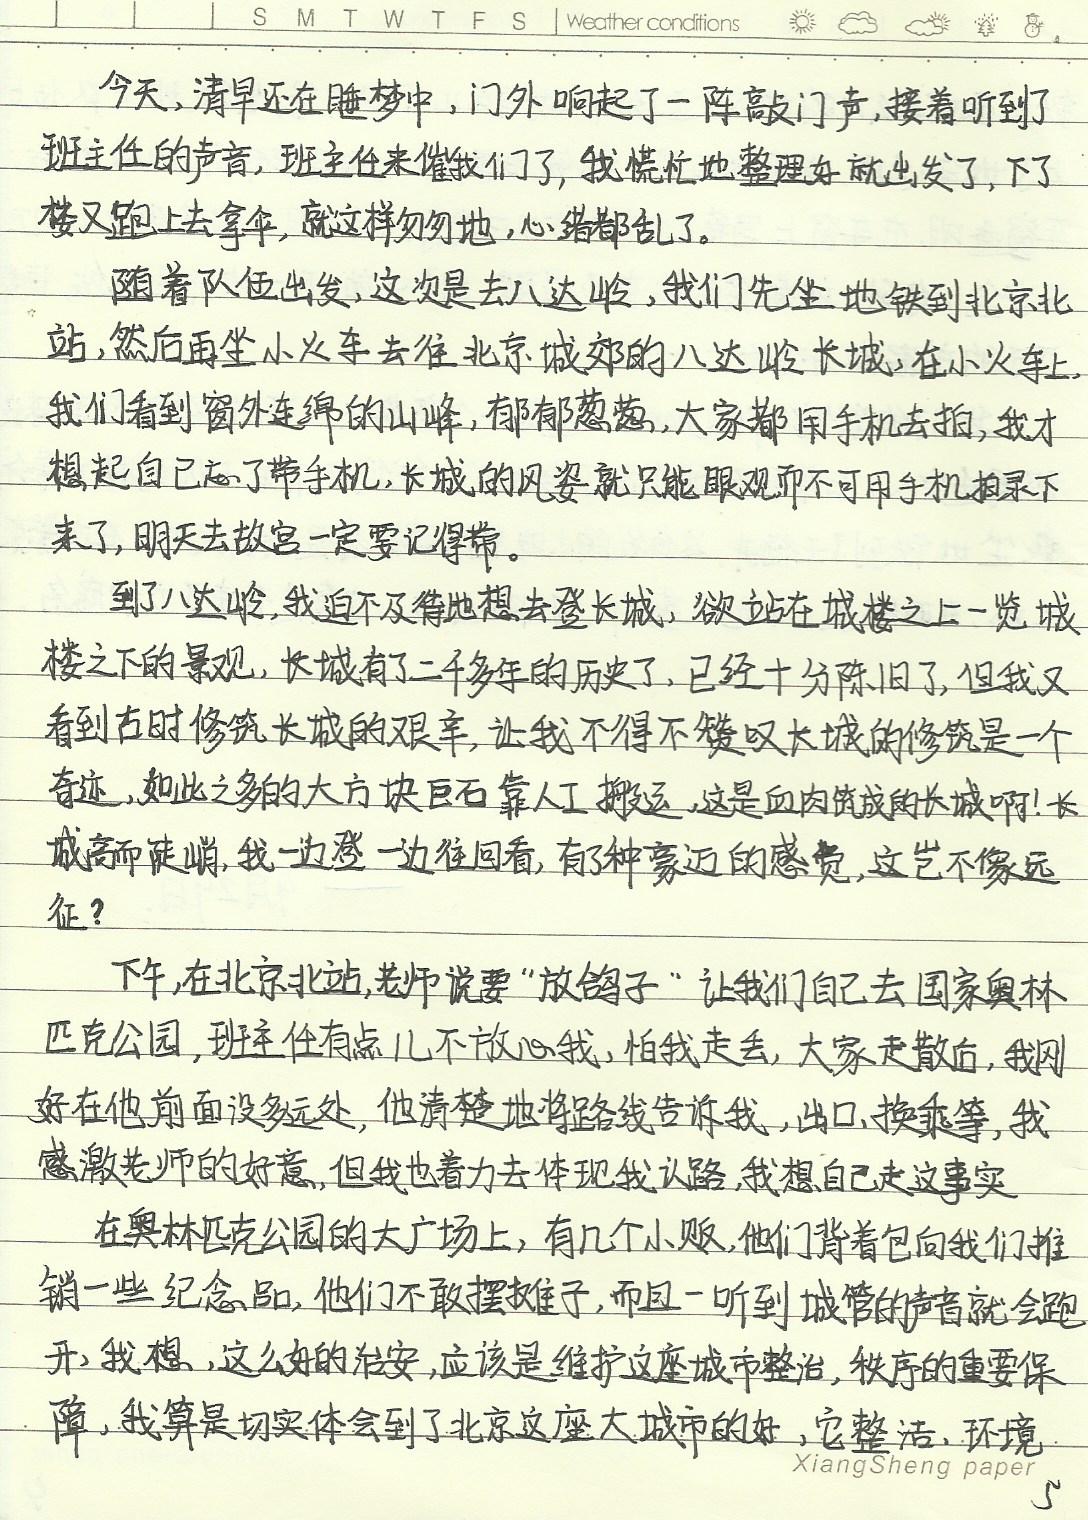 S M T W T F S Weather conditions
今天，清早还在睡梦中，门外响起了一阵敲门声，接着听到了
班主任的声音，班主任来催我们了，我慌忙地整理好就出发了，下了
楼又跑上去拿伞，就这样匆匆地，心绪都乱了。
随着队伍出发，这次是去八达岭，我们先坐地铁到北京北
站，然后再坐小火车去往北京城郊的八达岭长城，在小火车上，
我们看到窗外连绵的山峰，郁郁葱葱，大家都用手机去拍，我才
想起自己忘了带手机，长城的风姿就只能眼观而不可用手机拍录下
来了，明天去故宫一定要记得带。
到了八达岭，我迫不及待地想去登长城，欲站在城楼之上一览城
楼之下的景观，长城有了二千多年的历史了，已经十分陈旧了，但我又
看到古时修筑长城的艰辛，让我不得不赞叹长城的修筑是一个
奇迹，如此之多的大方块巨石靠人工搬运，这是血肉筑成的长城啊！长
城高而陡峭，我一边登一边往回看，有了种豪迈的感觉，这岂不像远
征？
下午，在北京北站，老师说要“放鸽子”让我们自己去国家奥林
匹克公园，班主任有点儿不放心我，怕我走丢，大家走散后，我刚
好在他前面没多远处，他清楚地将路线告诉我，出口、换乘等，我
感激老师的好意，但我也着力去体现我认路，我想自己走这事实
在奥林匹克公园的大广场上，有几个小贩，他们背着包向我们推
销一些纪念品，他们不敢摆摊子，而且一听到城管的声音就会跑
开，我想，这么好的治安，应该是维护这座城市整治，秩序的重要保
障，我算是切实体会到了北京这座大城市的好，它整洁、环境
XiangSheng paper
5